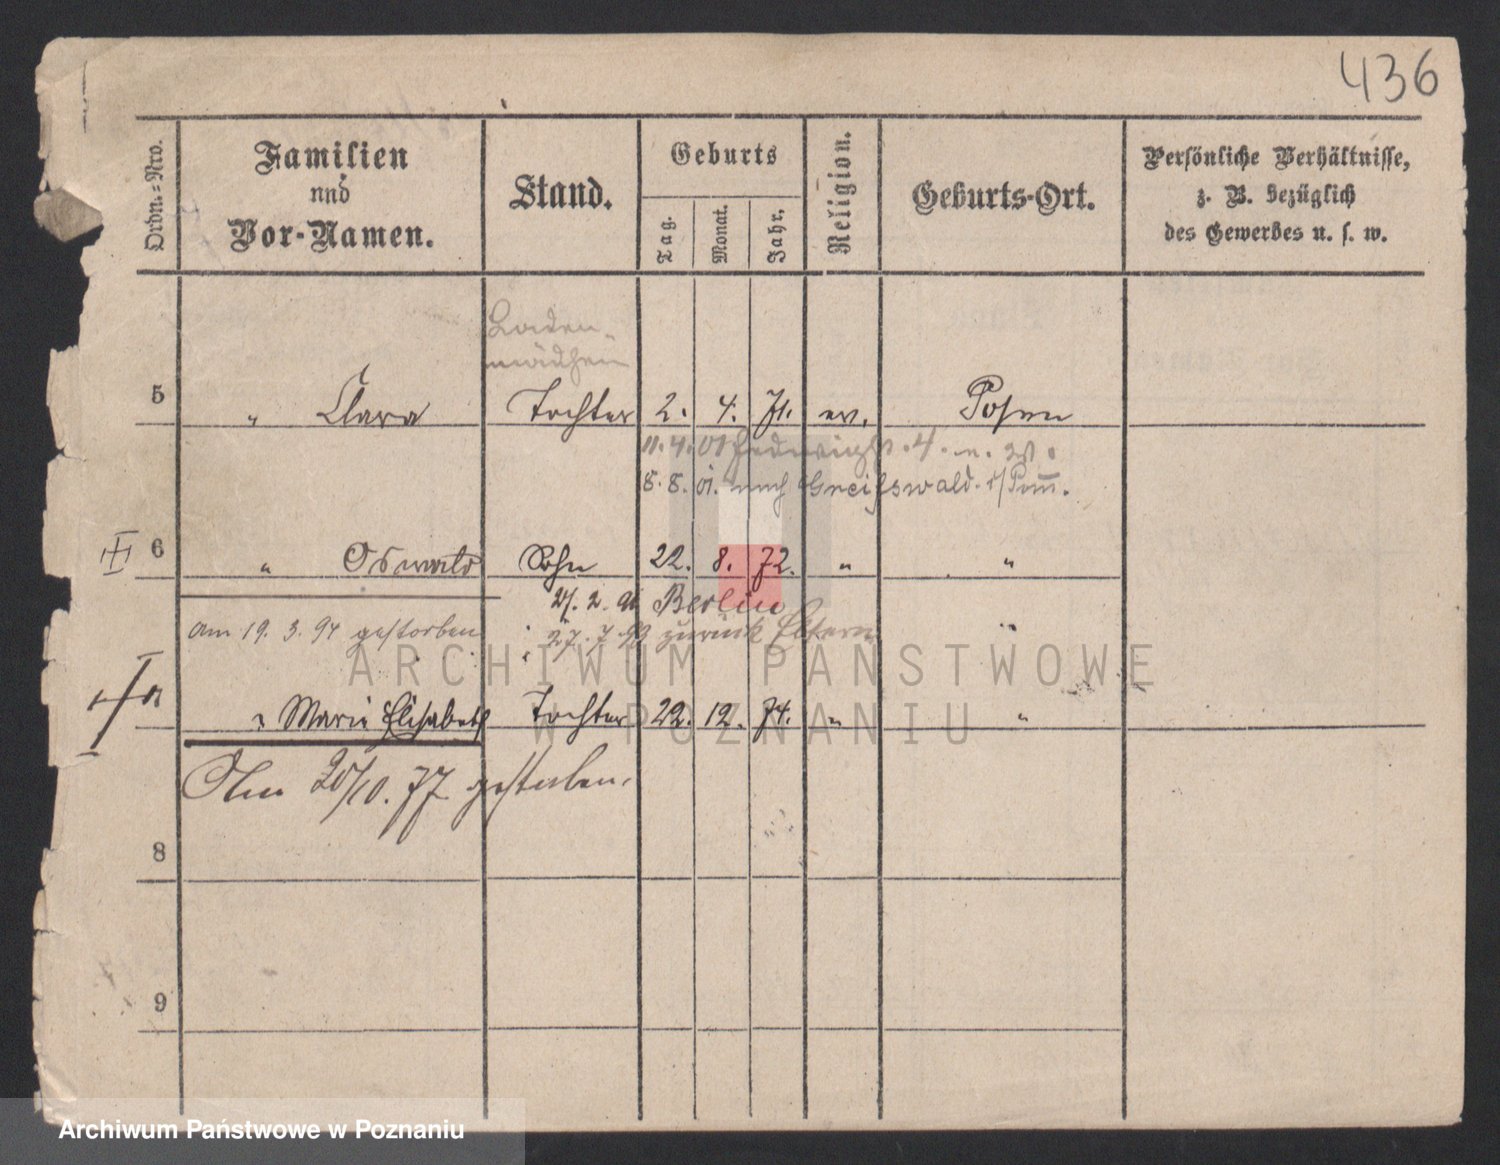 436
Ordn.-Nro.
Familien
und
Vor-Namen.
Stand.
Geburts
Tag.
Monat.
Jahr.
Religion.
Geburts-Ort.
Persönliche Verhältnisse,
z. B. bezüglich
des Gewerbes u. s. w.
Laden-
mädchen
5 " Clara Tochter 2. 4. 71. ev. Posen
11. 4. 01
8. 8. 01. nach Greifswald i/Pom.
6 " Oswald Sohn 22. 8. 72. " "
2. 96 Berlin
am 19. 3. 94 gestorben
27. 7. 99 zurück Eltern "
" Marie Elisabeth Tochter 22. 12. 74. " "
Am 20/10. 77 gestorben.
8
9
ARCHIWUM PAŃSTWOWE
W POZNANIU
Archiwum Państwowe w Poznaniu